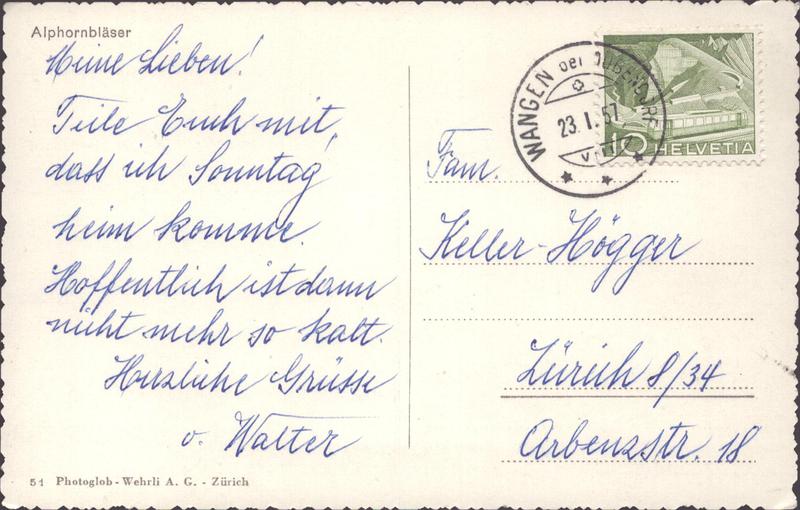 Alphornbläser
Meine Lieben!
Teile Euch mit,
dass ich Sonntag
heim komme.
Hoffentlich ist dann
nicht mehr so kalt.
Herzliche Grüsse
v. Walter
51 Photoglob-Wehrli A. G. - Zürich
WANGEN bei DÜBENDORF
23. I. 57
HELVETIA
Fam.
Keller-Högger
Zürich 8/34
Arbenzstr. 18